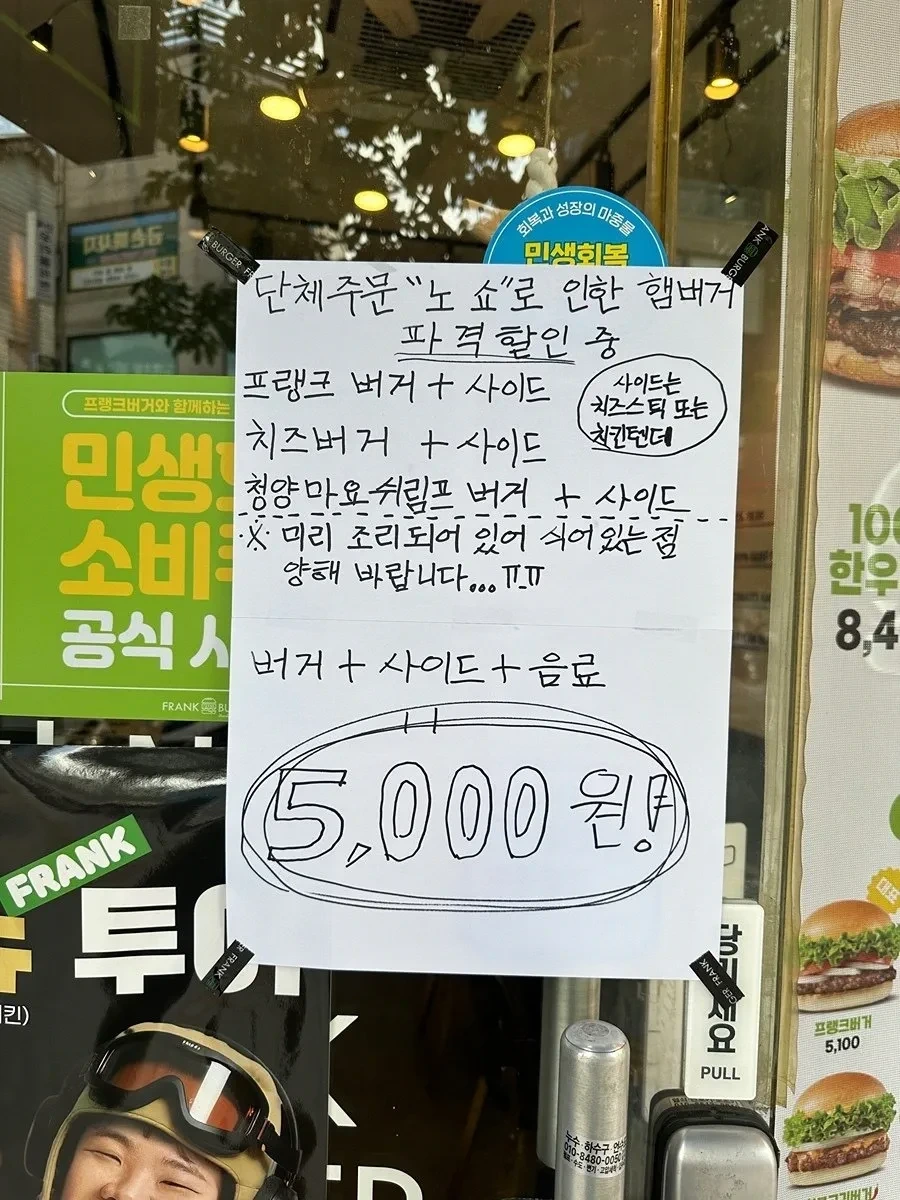 회복과 성장의 마중물
민생회복
BURGER FR
ANK BURG
단체주문 "노 쇼"로 인한 햄버거
파격할인 중
프랭크 버거 + 사이드
사이드는
치즈스틱 또는
치킨텐데
치즈버거 + 사이드
청양마요쉬림프 버거 + 사이드
※ 미리 조리되어 있어 식어있는점
양해 바랍니다... ㅠ_ㅠ
버거 + 사이드 + 음료
5,000원!
프랭크버거와 함께하는
민생
소비
공식
FRANK BU
FRANK
투
킨)
100
한우
8,4
대표
프랭크버거
5,100
GER FRANK
PULL
누수·하수구
010-8480-005